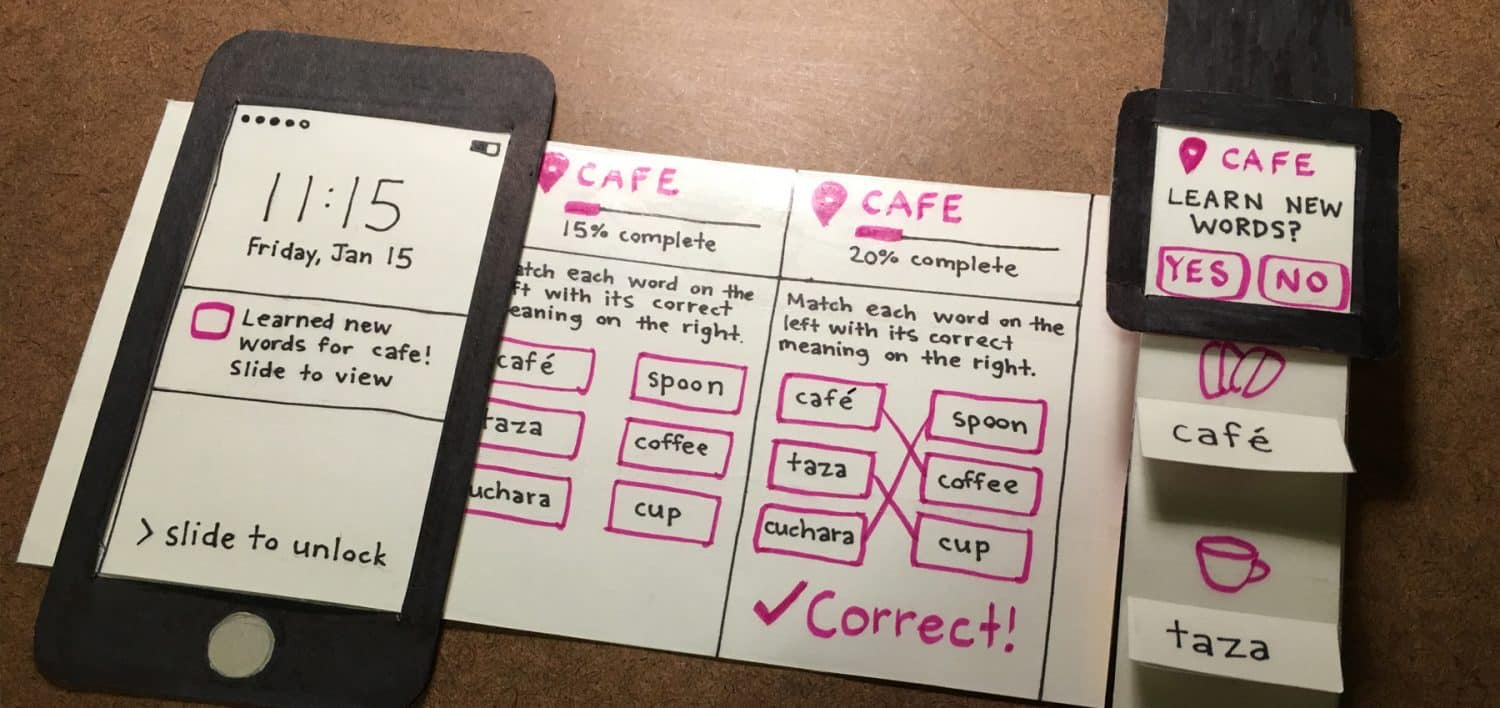 11:15
Friday, Jan 15
Learned new
words for cafe!
Slide to view
> slide to unlock
CAFE
15% complete
atch each word on the
ft with its correct
eaning on the right.
café
spoon
taza
coffee
uchara
cup
CAFE
20% complete
Match each word on the
left with its correct
meaning on the right.
café
spoon
taza
coffee
cuchara
cup
✓Correct!
CAFE
LEARN NEW
WORDS?
YES
NO
café
taza